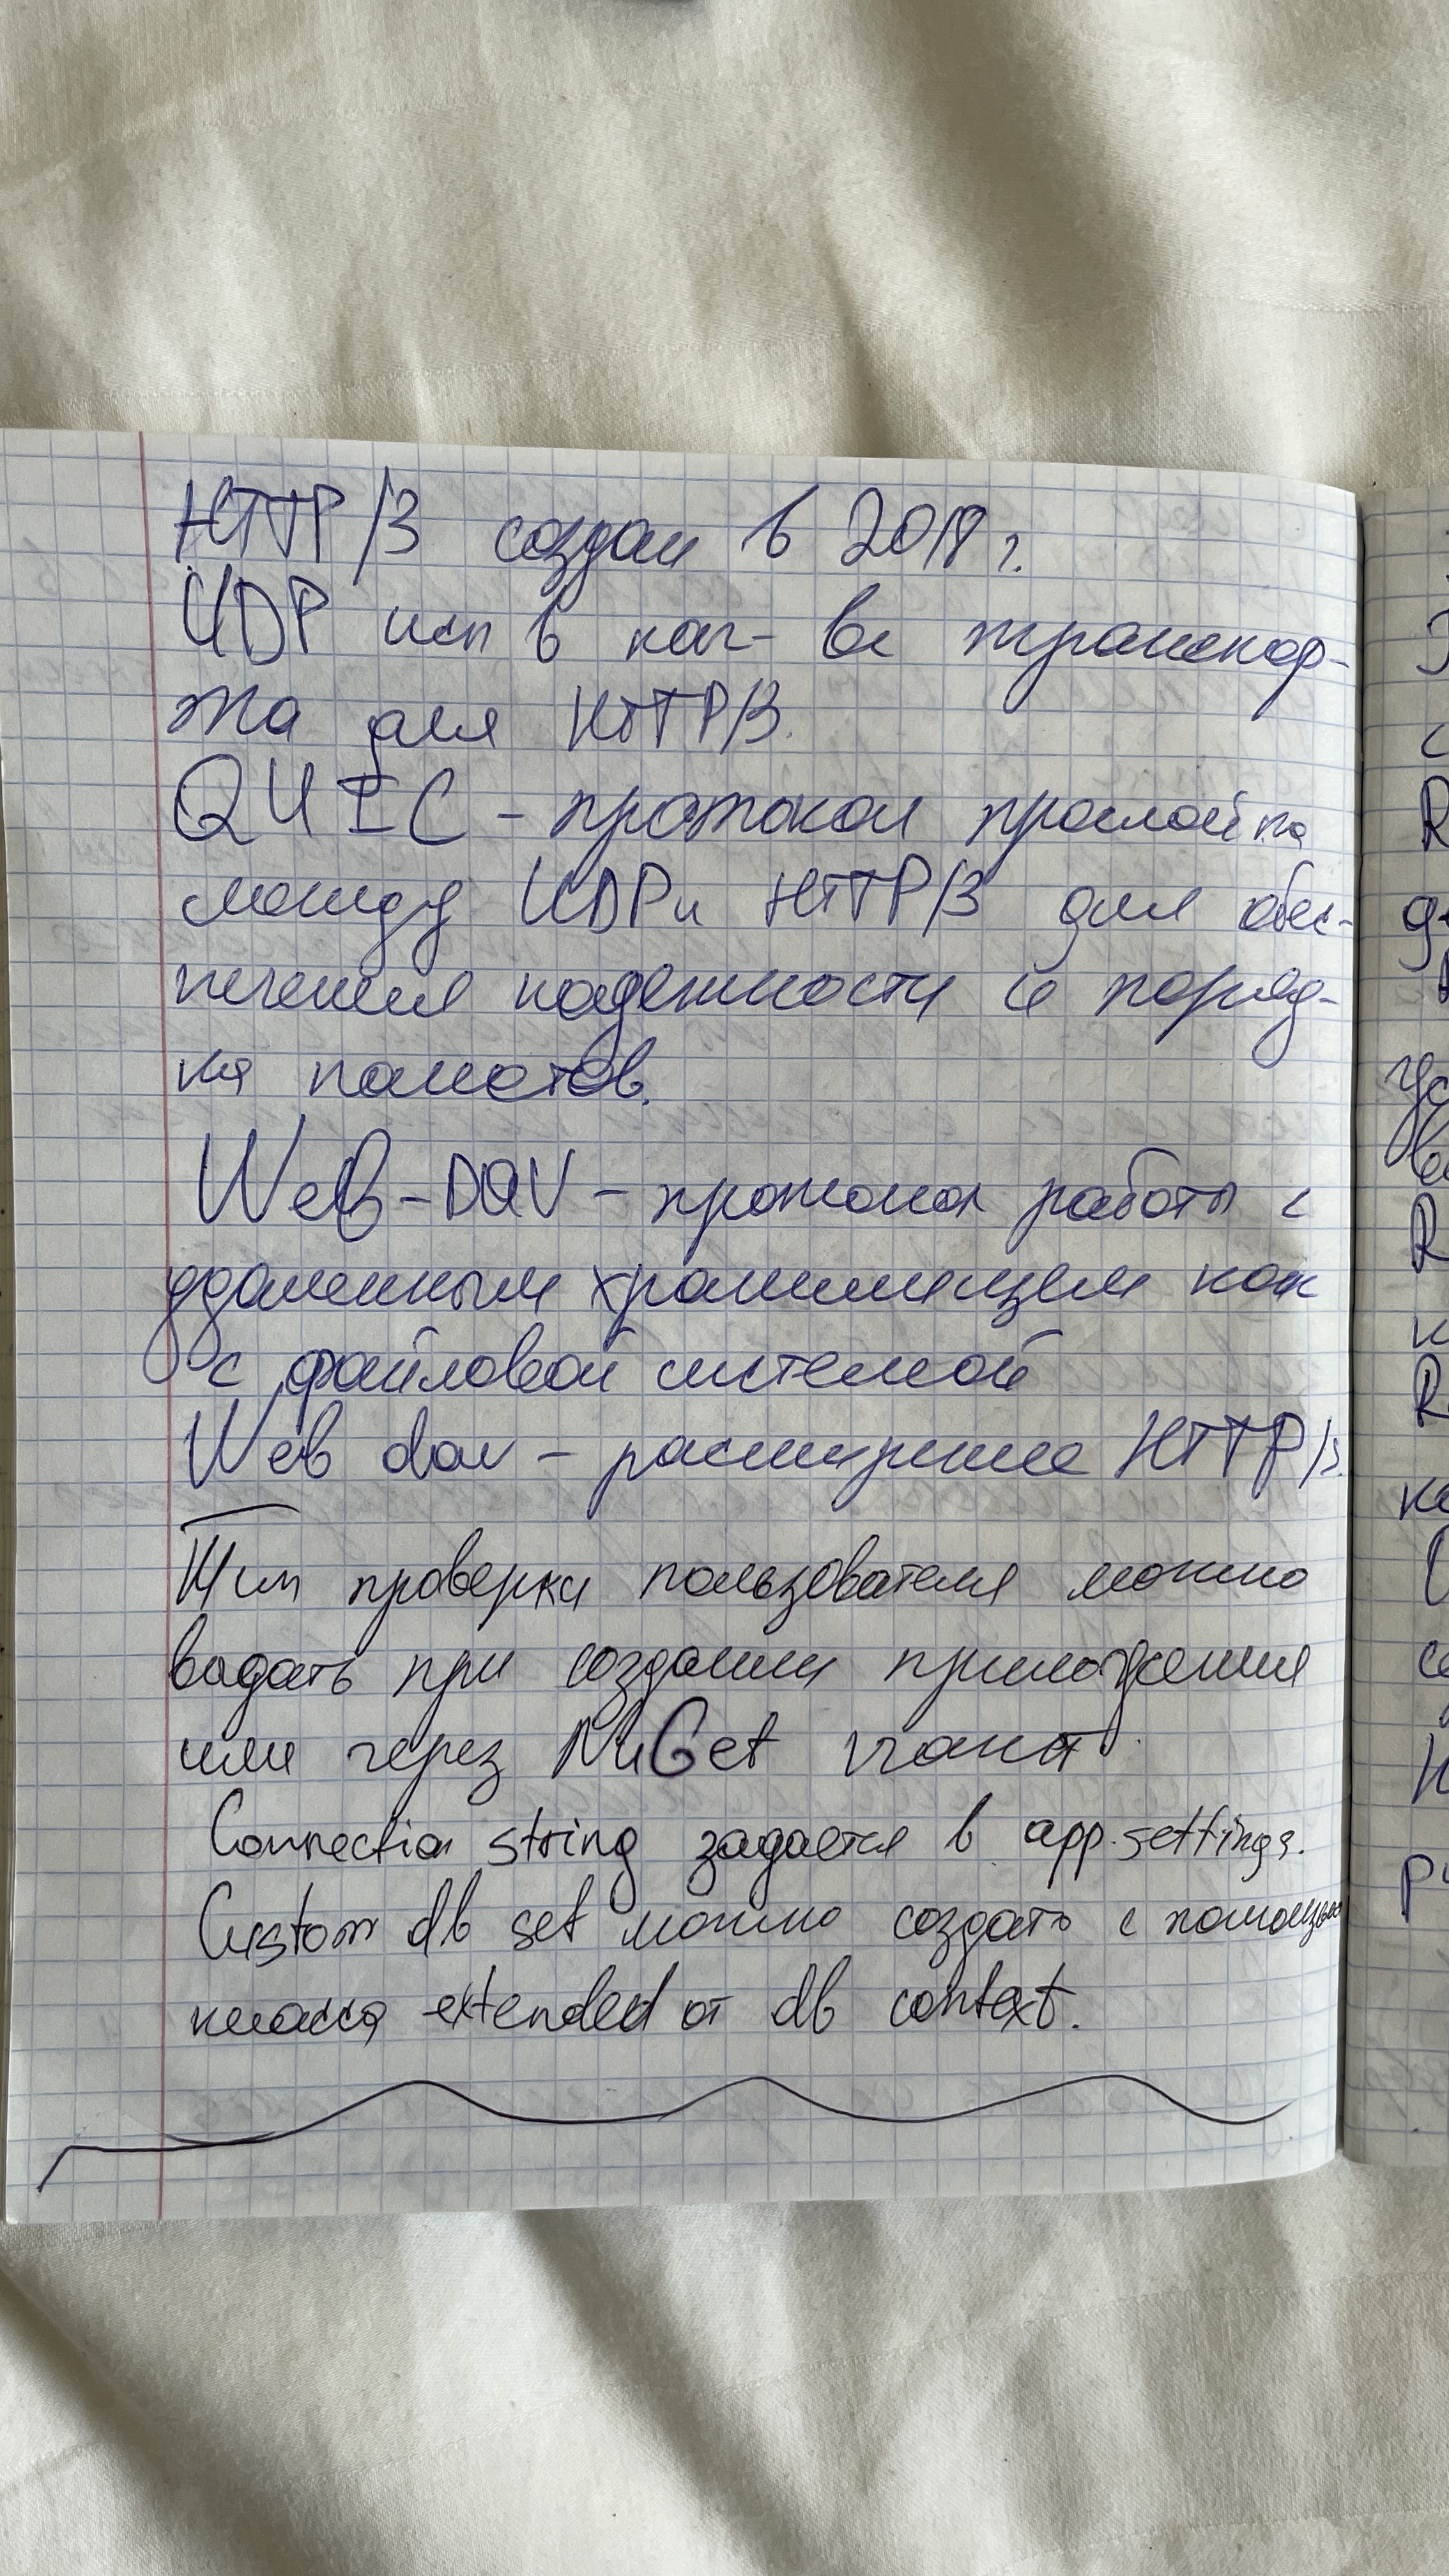 HTTP/3 создан в 2018 г.
UDP исп в кач-ве транспор-
та для HTTP/3.
QUIC - протокол прослойка
между UDP и HTTP/3 для обес-
печения надежности и поряд-
ка пакетов.
Web-DAV - протокол работы с
удаленным хранилищем как
с файловой системой
Web dav - расширение HTTP/3.
Тип проверки пользователя можно
задать при создании приложения
или через NuGet пакет.
Connection string задается в app.settings.
Custom db set можно создать с помощью
класса extended от db context.